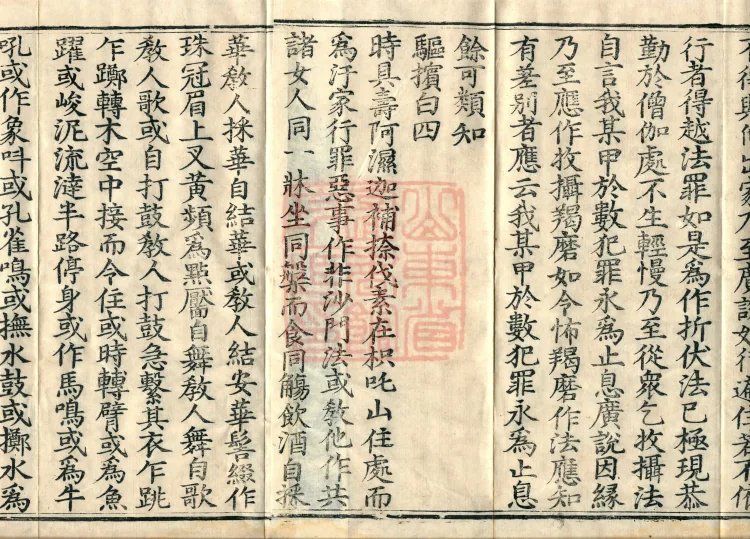 行者得越法罪如是爲作折伏法已極現恭
勤於僧伽處不生輕慢乃至從衆乞收攝法
自言我某甲於數犯罪永爲止息廣説因縁
乃至應作收攝羯磨如令怖羯磨作法應知
有差别者應云我某甲於數犯罪永爲止息
餘可類知
驅擯白四
時具壽阿濕迦補捺伐素在枳吒山住處而
爲汙家行罪惡事作非沙門法或教他作共
諸女人同一牀坐同槃而食同觴飲酒自採
華教人採華自結華或教人結安華髻綴作
珠冠眉上叉黄頰爲點靨自舞教人舞自歌
教人歌或自打鼓教人打鼓急繫其衣乍跳
乍躑轉木空中接而令住或時轉臂或爲魚
躍或峻泥流澾半路停身或作馬鳴或爲牛
吼或作象吽或孔雀鳴或撫水鼓或擲水爲